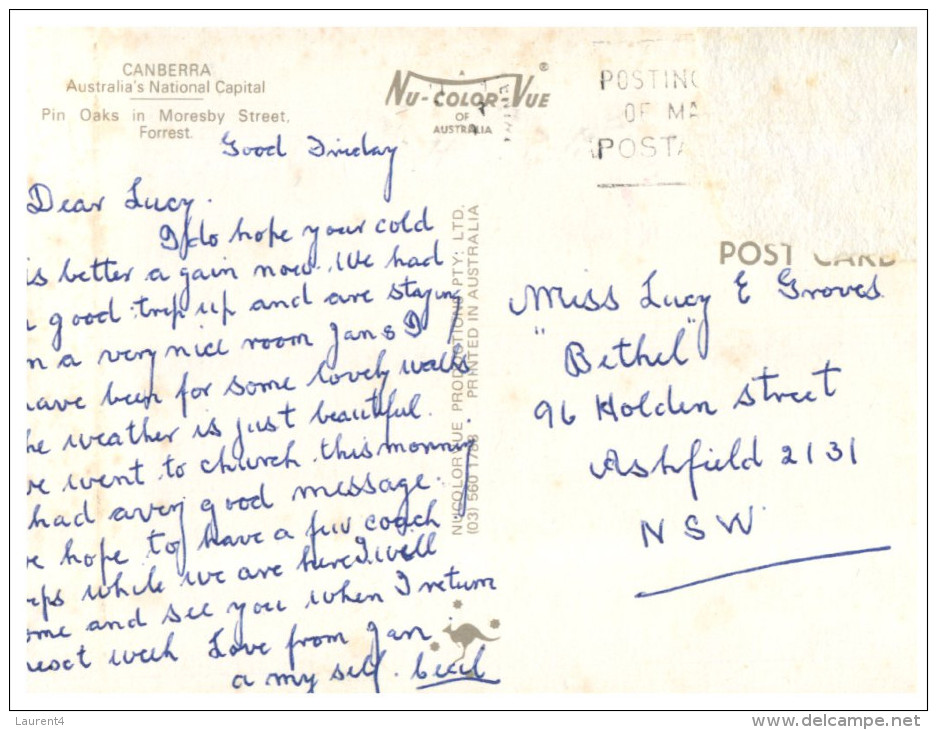 CANBERRA
Australia's National Capital
Pin Oaks in Moresby Street,
Forrest.
NU-COLOR-VUE
®
OF
AUSTRALIA
POSTING
OF MA
POSTA
POST CARD
Good
Dear Lucy.
I do hope your cold
is better a gain now. We had
good trip up and are staying
n a very nice room Jan & I
have been for some lovely walks
he weather is just beautiful.
we went to church this morning
had a very good message.
we hope to have a few coach
rps while we are here. I will
ome and see you when I return
next week Love from Jan
a my self. Cecil
NUCOLORVUE PRODUCTIONS PTY. LTD.
(03) 560 1788 • PRINTED IN AUSTRALIA
Miss Lucy E Groves
"Bethel"
96 Holden Street
Ashfield 2131
NSW
Laurent4
www.delcampe.net